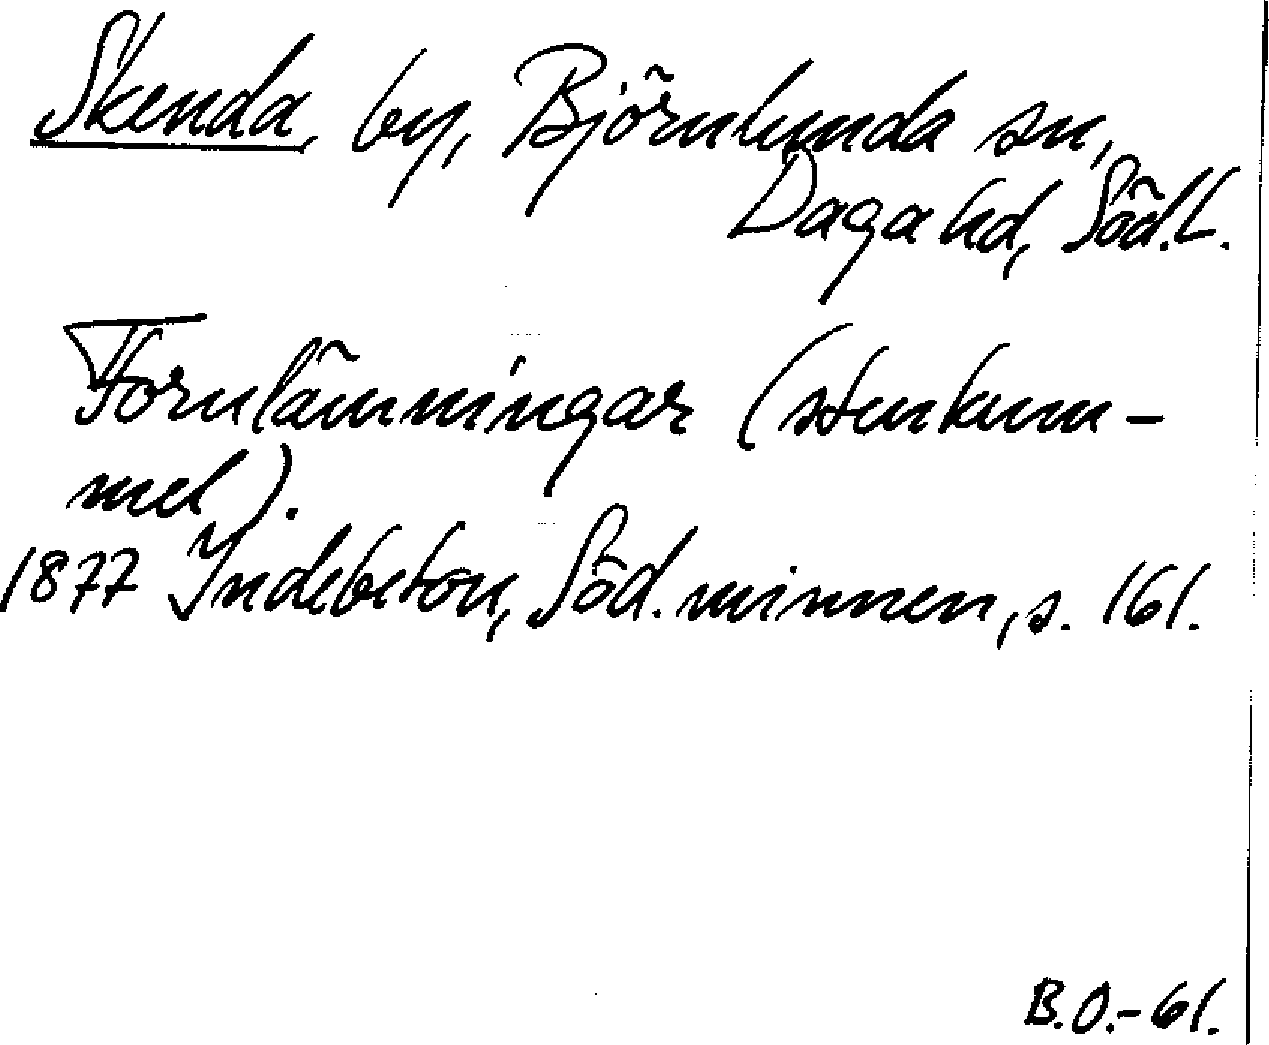 Skenda, by, Björnlunda sn,
Daga hd, Söd.L.
Fornlämningar (stenkum-
mel).
1877 Indebetou, Söd. minnen, s. 161.
B.O.-61.